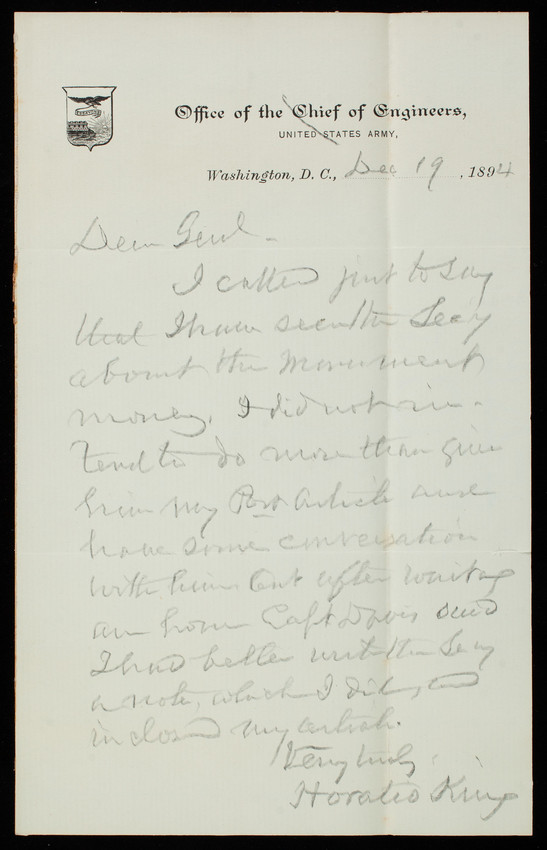 Office of the Chief of Engineers,
UNITED STATES ARMY,
Washington, D. C., Dec 19, 1894
Dear Genl -
I called just to say
that I have seen the Secy
about the Monument
money. I did not in-
tend to do more than give
him my Post Article and
have some conversation
with him but after waiting
an hour Capt Davis said
I had better write the Secy
a note, which I did, and
inclosed my article.
Very truly
Horatio King